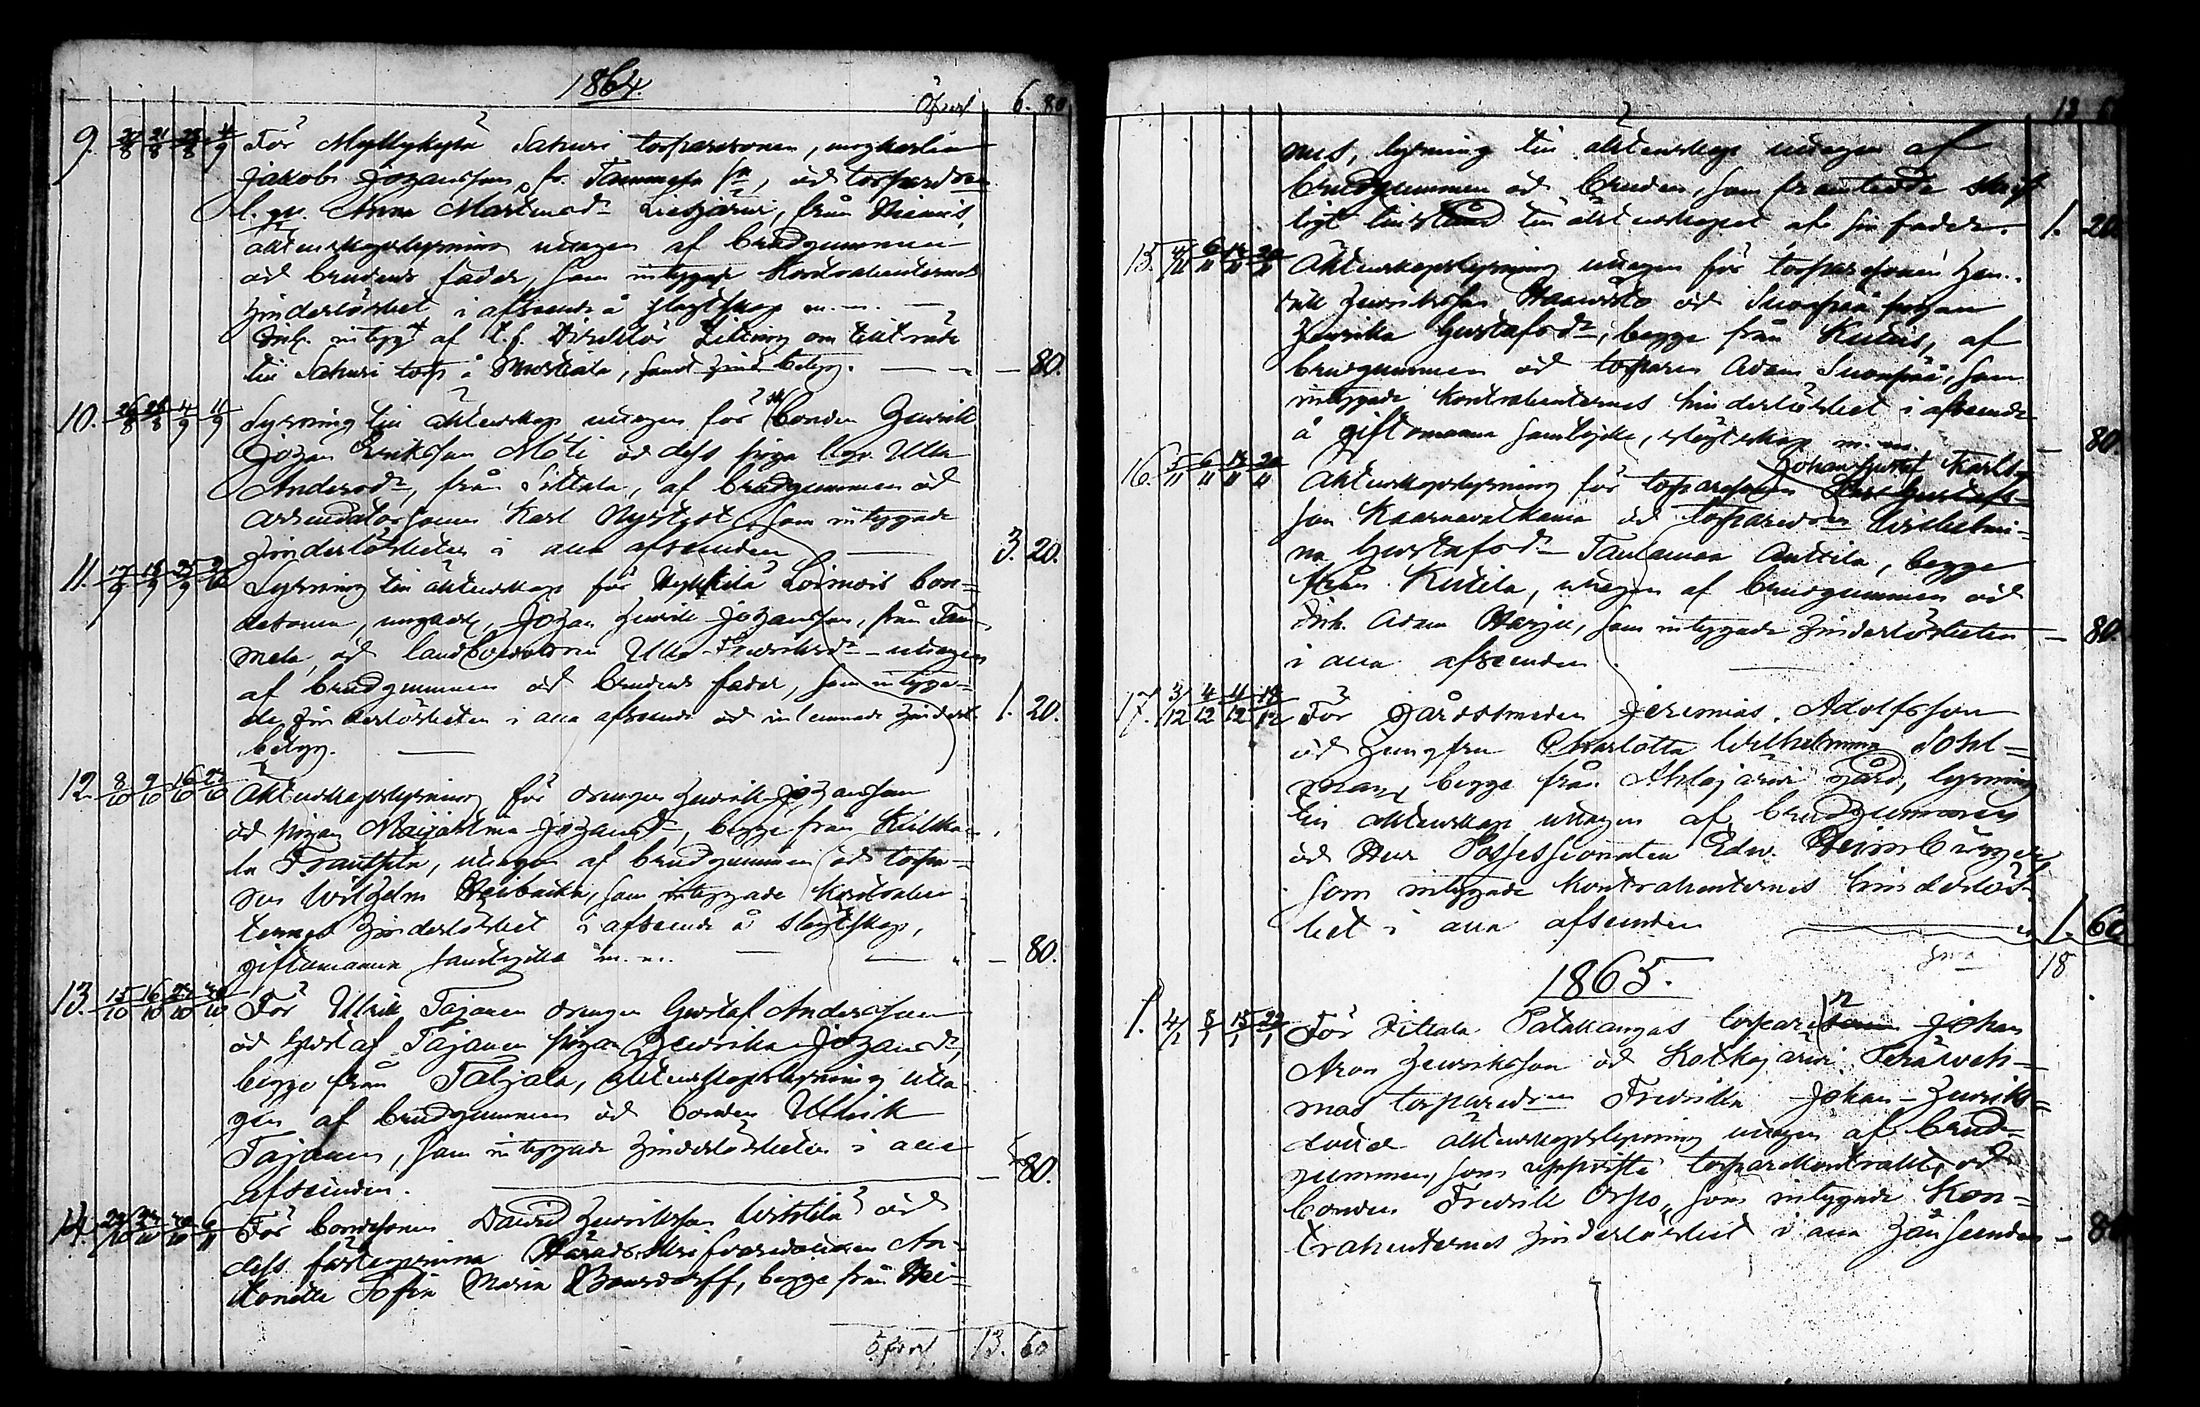 1864.
Öfverf. 6. 80
9. 20/8 21/8 28/8 4/9 För Myllykylä Sakuri torparesonen, ungkarlen
Jakob Johansson, fr. Tammela, och torpared:n
l. qv. Anna Martinsd:r Liesjärvi, från
äktenskapslysning uttagen af brudgummen
och brudens fader, som intygade Kontrahenternas
hinderlöshet i afseende å slägtskap m.m. —
intyg af t.f. Direktör Zitting om tillträde
till Sakuri torp å Mustiala, samt hind. betyg. — 80.
10. 26/8 28/8 4/9 11/9 Lysning till äktenskap uttagen för bonden Henrik
Johan Eriksson Möli och dess piga l.qv. Ulla
Andersd:r, från Sittala, af brudgummen och
arrendatorsonen Karl Nystedt, som intygade
hinderlösheten i alla afseenden — 3. 20.
11. 17/9 18/9 25/9 2/10 Lysning till äktenskap för Nykkilä Loimois bon-
desonen, ungkarl. Johan Henrik Johansson, från Tam-
mela, och landbondedottren Ulla Fredriksd:r uttagen
af brudgummen och brudens fader, som intyga-
de hinderlösheten i alla afseende och inlemnade hinderl.
betyg. — 1. 20.
12. 8/10 9/10 16/10 23/10 Äktenskapslysning för drängen Henrik Johansson
och pigan Maja Stina Johansd:r, begge från Kuilka-
la Frantsila, uttagen af brudgummen och torpa-
ren Wilhelm Heibacka, som intygade Kontrahen-
ternas hinderlöshet i afseende å slägtskap,
giftomanna samtycke m.m. — 80.
13. 15/10 16/10 23/10 30/10 För Ulrik Tajanen drängen Gustaf Andersson
och Gustaf Tajanen pigan Henrika Johansd:r,
begge från Taljala, äktenskapslysning utta-
gen af brudgummen och bonden Ullrik
Tajanen, som intygade hinderlösheten i alla
afseenden. — 80.
14. 22/10 23/10 30/10 6/11 För bondesonen David Henriksson Uotila och
dess fästeqvinna Häradsskrifvaredottren An-
tonette Sofia Maria Bonsdorff, begge från Hei-
Öfverf. 13. 60
13 60
nus, lysning till äktenskap uttagen af
brudgummen och bruden, som framtedde skrif-
tligt tillstånd till äktenskapet af sin fader. 1. 20
15. 4/11 6/11 13/11 20/11 Äktenskapslysning uttagen för torparesonen Hen-
rik Henriksson Haavisto och Suonpää pigan
Henrika Gustafsd:r, begge från Kutila, af
brudgummen och torparen Adam Suonpää, som
intygade kontrahenternes hinderlöshet i afseende
å giftomanna samtycke, slägtskap m.m. — 80.
16. 5/11 6/11 13/11 20/11 Äktenskapslysning för torparesonen Johan Gustaf Karls-
son Kaarnavalkama och torpared:n Wilhelmi-
na Gustafsd:r Tanlamaa Anttila, begge
från Kutila, uttagen af brudgummen och
Adam Harju, som intygade hinderlösheten — 80.
i alla afseenden.
17. 3/12 4/12 11/12 18/12 För gårdssmeden Jeremias Adolfsson
och Jungfru Charlotta Wilhelmina Sohl-
man, begge från Ahlajärvi gård, lysning
till äktenskap uttagen af brudgummen
och Herr Possessionaten Edw. Heimbürger,
som intygade kontrahenternes hinderlös-
het i alla afseenden 1. 60
Sma 18
1865.
1. 4/1 8/1 15/1 22/1 För Sittala Palakangas torparesonen Johan
Aron Henriksson och Kotkajärvi Teräveh-
mas torpared:n Fredrika Johan Henriks-
dotter äktenskapslysning uttagen af brud-
gummen, som uppviste torparekontrakt, och
bonden Fredrik Orpo, som intygade Kon-
trahenternes hinderlöshet i alla hänseenden — 80